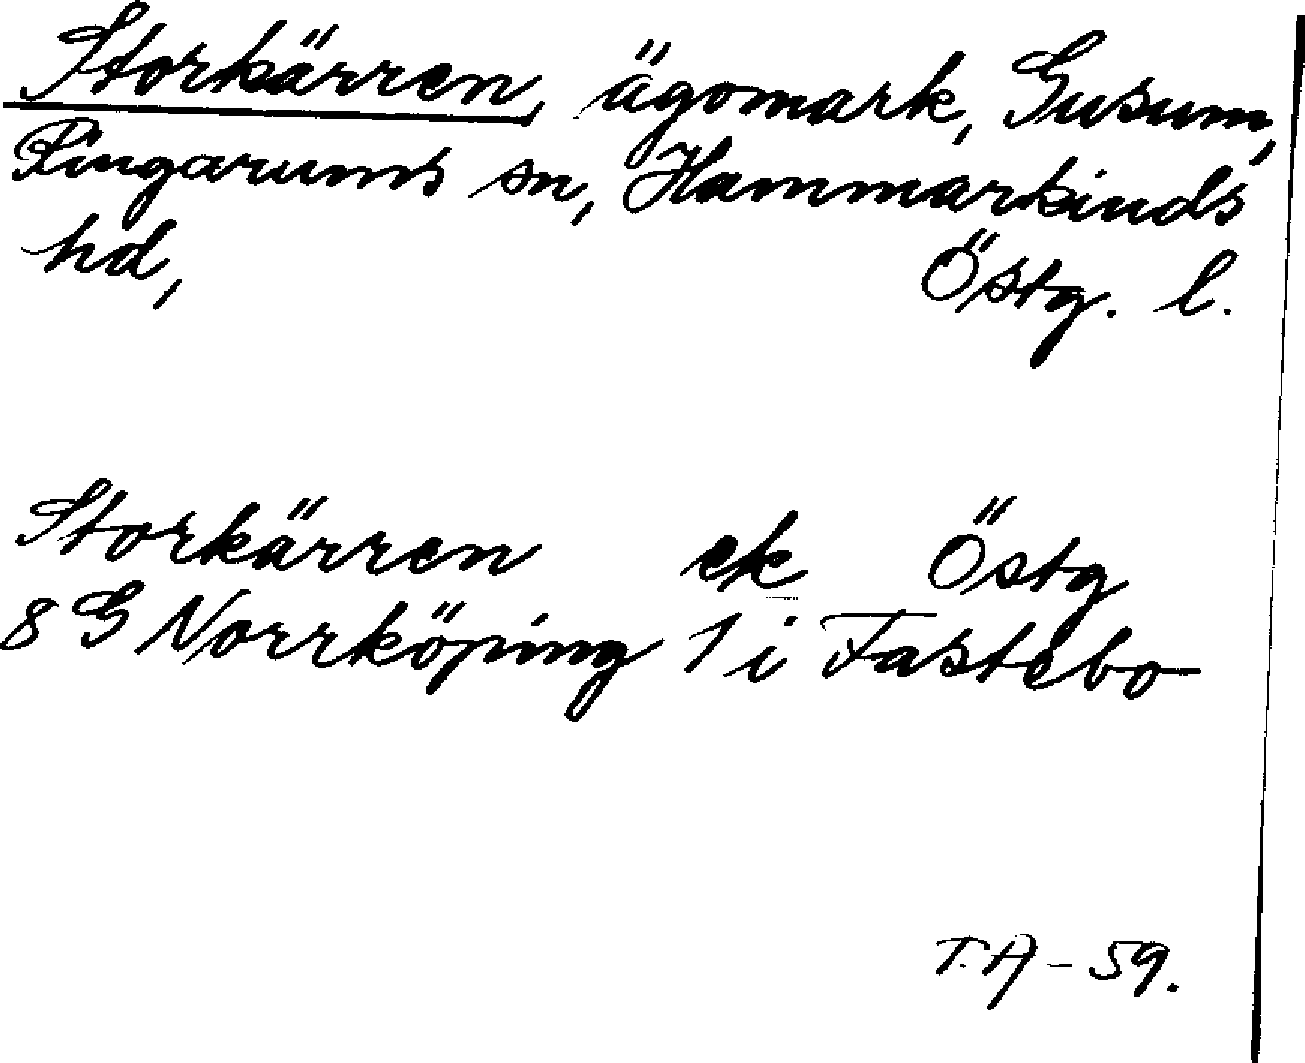 Storkärren, ägomark, Gusum,
Ringarums sn, Hammarkinds
hd, Östg. l.
Storkärren ek Östg
8 G Norrköping 1 i Fastebo
T.A - 59.